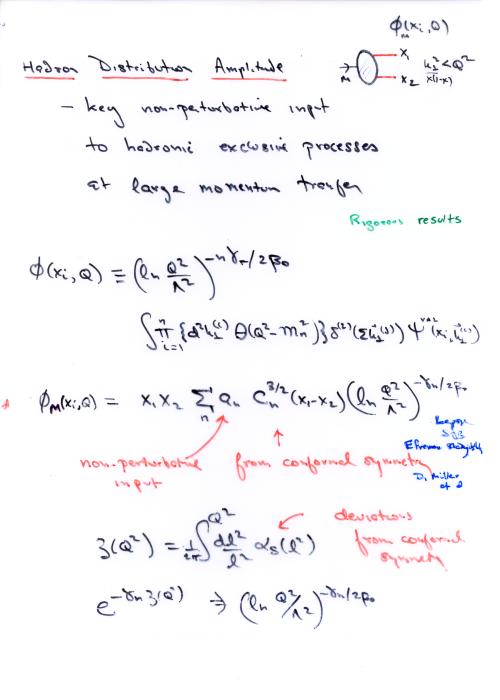 ϕ_M(x_i, Q)
Hadron Distribution Amplitude
M x_1 k_⊥^2/x(1-x) < Q^2
x_2
– key non-perturbative input
to hadronic exclusive processes
at large momentum tranfer
Rigorous results
ϕ(x_i, Q) ≡ (ln Q^2/Λ^2)^{-n γ_F/2β_0}
∫ π_{i=1}^n {d^2k_⊥^{(i)} θ(Q^2 - m_n^2)} δ^{(2)}(Σk_⊥^{(i)}) ψ (x_i, k_⊥^{(i)})
ϕ_M(x_i, Q) = x_1 x_2 Σ_n a_n C_n^{3/2}(x_1-x_2) (ln Q^2/Λ^2)^{-γ_n/2β_0}
Lepage
SJB
Efremov Radyushkin
D. Müller
et al
non-perturbative from conformal symmetry
input
deviations
ξ(Q^2) = 1/4π ∫^{Q^2} dl^2/l^2 α_s(l^2) from conformal
symmetry
e^{-γ_n ξ(Q^2)} → (ln Q^2/Λ^2)^{-γ_n/2β_0}